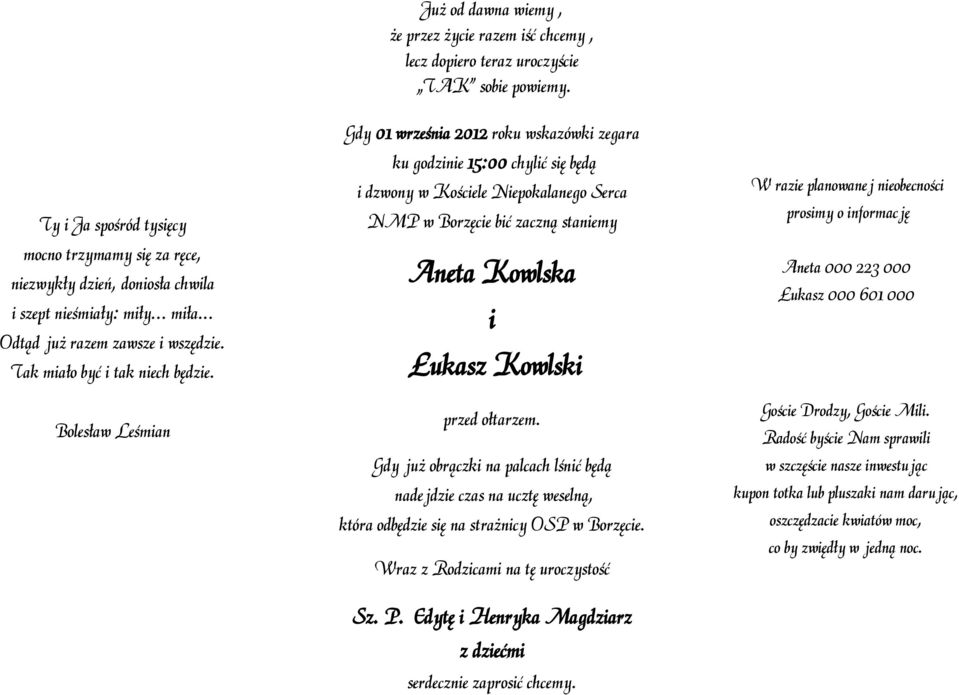 Ty i Ja spośród tysięcy
mocno trzymamy się za ręce,
niezwykły dzień, doniosła chwila
i szept nieśmiały: miły... miła...
Odtąd już razem zawsze i wszędzie.
Tak miało być i tak niech będzie.
Bolesław Leśmian
Już od dawna wiemy ,
że przez życie razem iść chcemy ,
lecz dopiero teraz uroczyście
„TAK" sobie powiemy.
Gdy 01 września 2012 roku wskazówki zegara
ku godzinie 15:00 chylić się będą
i dzwony w Kościele Niepokalanego Serca
NMP w Borzęcie bić zaczną staniemy
Aneta Kowlska
i
Łukasz Kowlski
przed ołtarzem.
Gdy już obrączki na palcach lśnić będą
nadejdzie czas na ucztę weselną,
która odbędzie się na strażnicy OSP w Borzęcie.
Wraz z Rodzicami na tę uroczystość
Sz. P. Edytę i Henryka Magdziarz
z dziećmi
serdecznie zaprosić chcemy.
W razie planowanej nieobecności
prosimy o informację
Aneta 000 223 000
Łukasz 000 601 000
Goście Drodzy, Goście Mili.
Radość byście Nam sprawili
w szczęście nasze inwestując
kupon totka lub pluszaki nam darując,
oszczędzacie kwiatów moc,
co by zwiędły w jedną noc.